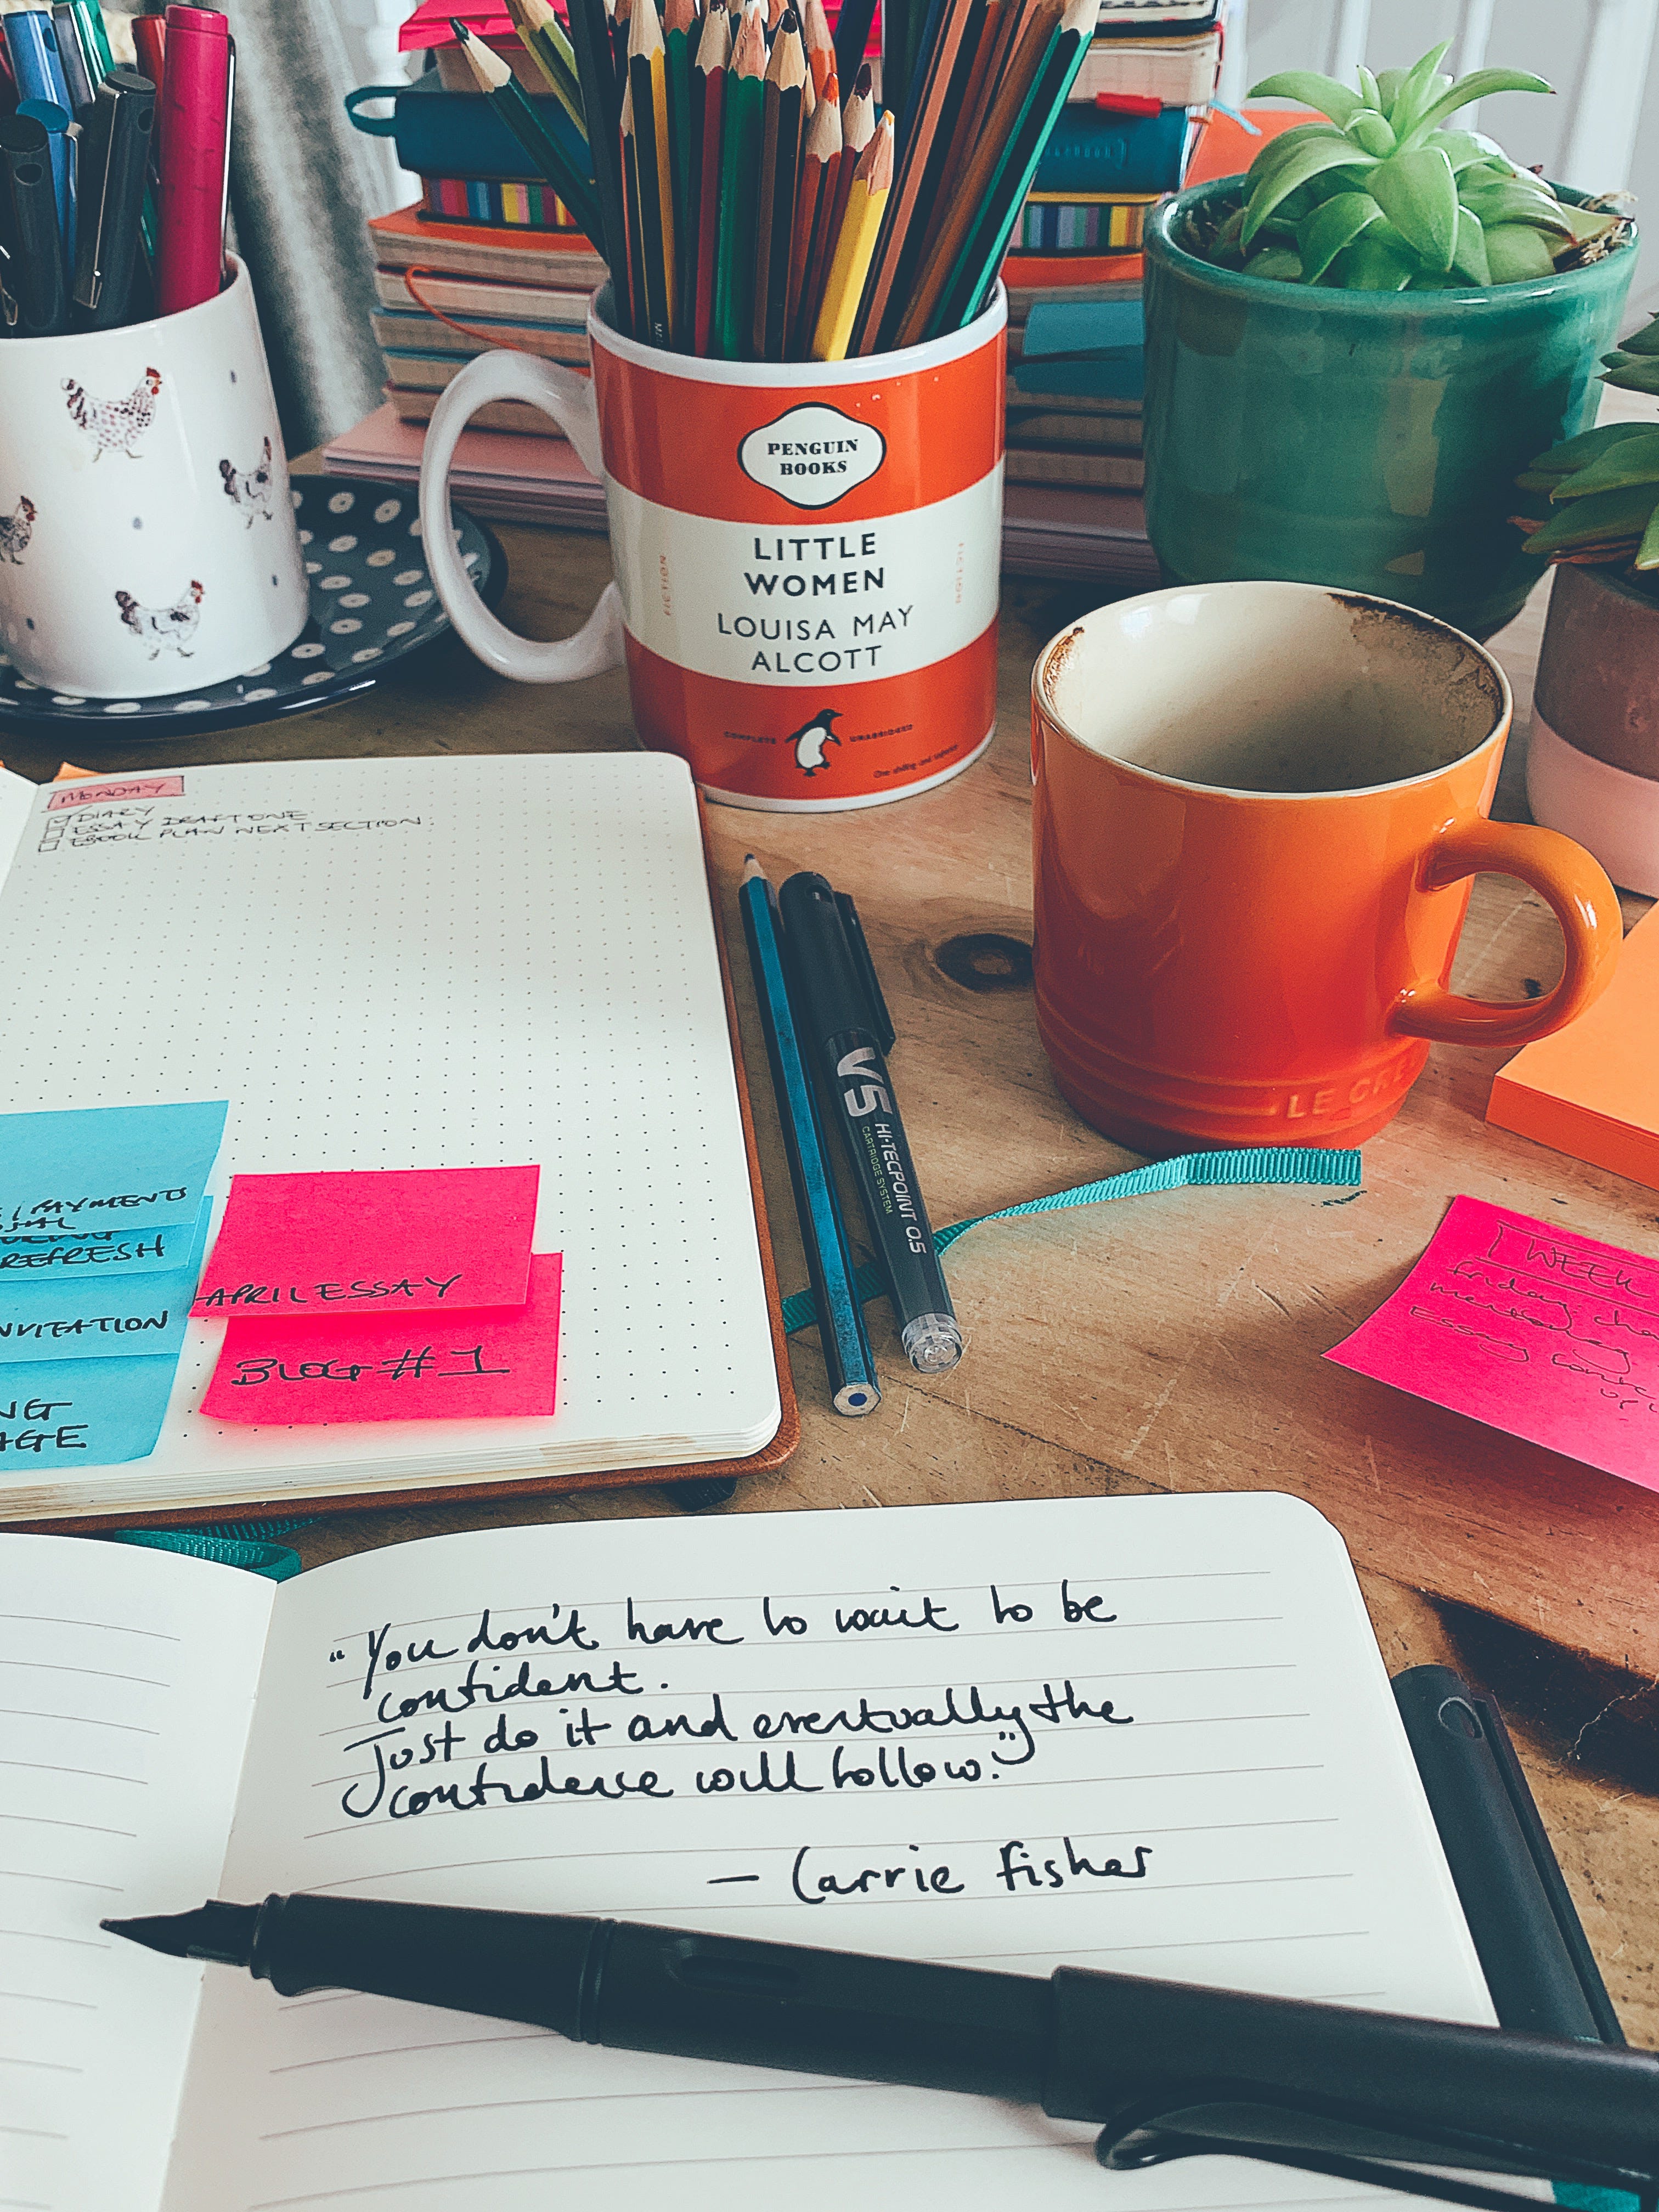 PENGUIN
BOOKS
LITTLE
WOMEN
LOUISA MAY
ALCOTT
FICTION
FICTION
COMPLETE
UNABRIDGED
MONDAY
DIARY
ESSAY DRAFT ONE
EBOOK PLAN NEXT SECTION
LE CRE
V5 HI-TECPOINT 0.5
CARTRIDGE SYSTEM
PAYMENTS
REFRESH
NVITATION
NG
AGE
APRIL ESSAY
BLOG #1
1 WEEK
friday
Essay
"You don't have to wait to be
confident.
Just do it and eventually the
confidence will follow."
— Carrie Fisher